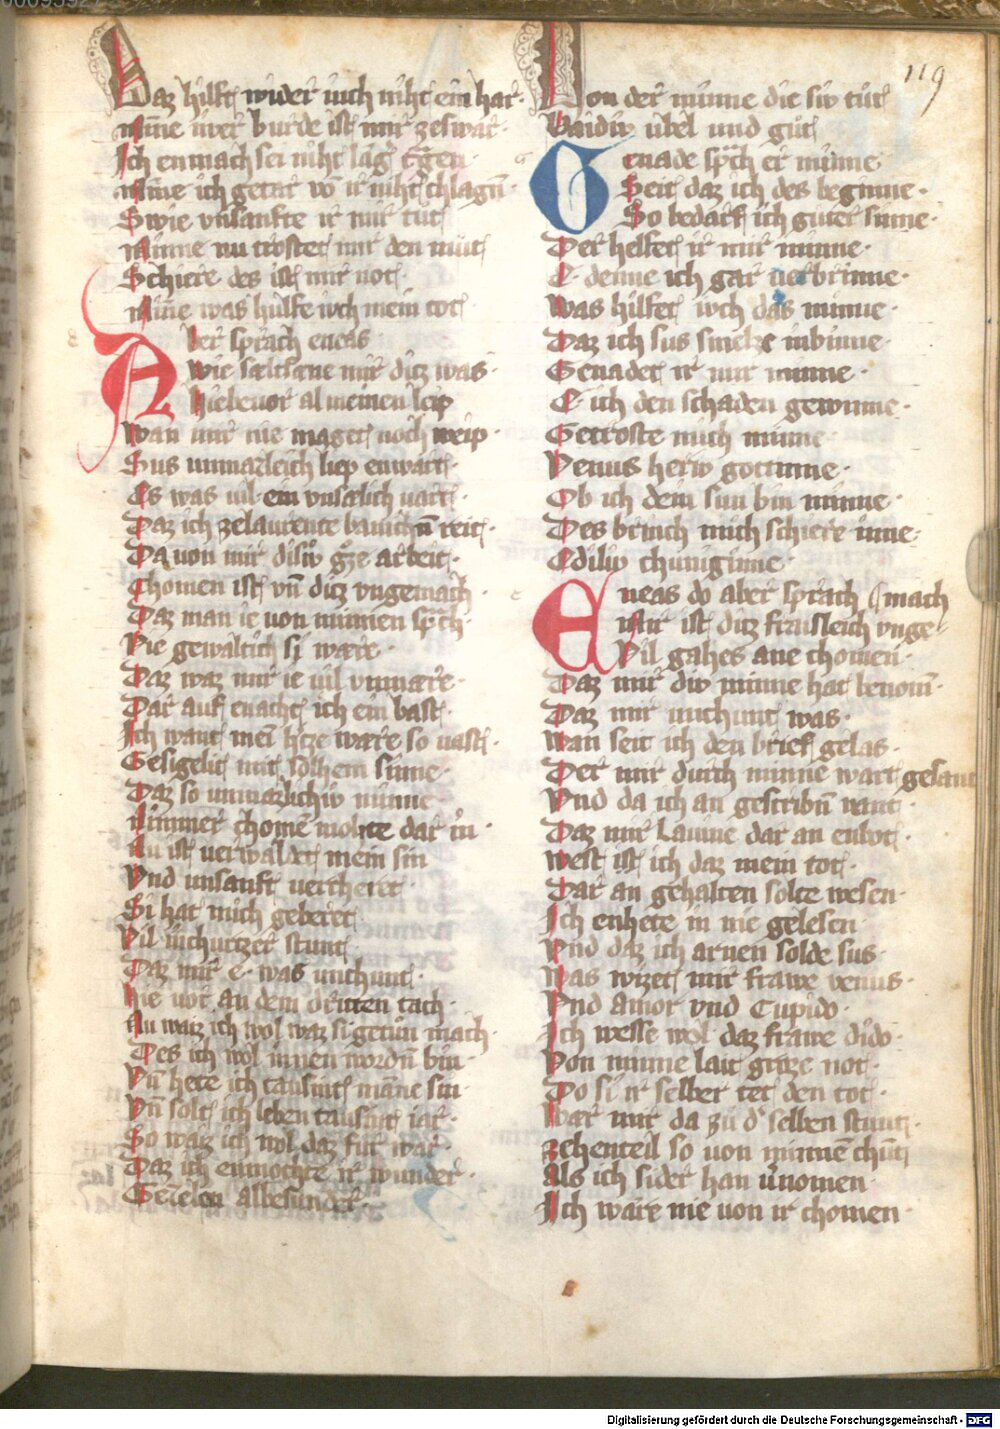 119
Daz hilfet wider iuch niht ein har·
Mīne iwer burde ist mir ze swar·
Ich en mach sei niht lāg t͛gen·
Mīne ich getar vō ir niht chlagn̄·
Swie vnsanfte ir mir tut
Minne nu trostet mir den mūt
Schiere des ist mir not·
Mīne was hulfe iwch mein tot
Aber sprach eneas
wie sæltsæne mir ditz was·
Hie bevor al meinen leip
Wan mir nie maget noch weip·
Sus unmazleich liep enwart·
Es was vil ein vnsælich vart·
Daz ich ze laurente bauichn̄ reit·
Da von mir disiv g͛ze arbeit·
Chomen ist vn̄ ditz vngemach·
Daz man ie von minnen sp͛ch·
Wie gewaltich si wære·
Daz waz mir ie vil vnmære·
Dar auf enacht ich ein bast·
Ich want mein h͛tze wære so vast·
Gesigelt mit solhem sinne·
Daz so vnmazlichiv minne
Nimmer chomē mohte dar in·
Nu ist verwaldet mein sin
Vnd vnsanft vercheret·
Si hat mich geberet
Vil in churtzer stunt
Daz mir e· was vnchunt·
Hie vor an dem dritten tach·
Nu waiz ich wol waz si getūn mach·
Des ich wol innen wordn̄ bin·
Vn̄ hete ich tausint māne sin
Vn̄ solt ich leben tausint iar·
So waiz ich wol daz fur war·
Daz ich enmochte ir wunder·
Gezelen albesunder·
Von der minne die siv tūt
Baidiv vbel und gūt
Genade sp͛ch er minne·
Seit daz ich des beginne·
So bedarf ich guter sinne·
Der helfet ir mir minne·
E· denne ich gar verbrinne·
Was hilfet iwch das minne·
Daz ich sus smeltze inbinne·
Genadet ir mir minne·
E· ich den schaden gewinne·
Getroste mich minne·
Venus heriv gotinne·
Ob ich dein sun bin minne·
Des brinch mich schiere inne·
Ediliv chuniginne·
Eneas do aber sprach
Mir ist ditz fraisleich vnge-mach
Vil gahes ane chomen·
Daz mir div minne hat benom̄·
Daz mir vnchunt was·
Wan seit ich den brief gelas·
Der mir durch minne wart gesant
Vnd da ich an gescribn̄ vant·
Daz mir Lavine dar an enbot·
West ich daz mein tot·
Dar an gehalten solte wesen·
Ich enhete in nie gelesen·
Vnd daz ich arnen solde sus·
Was wizet mir frawe venus·
Vnd amor vnd Cupido·
Ich wesse wol daz frawe dido·
Von minne lait groze not·
Do si ir selber tet den tot·
Wær mir da zū d͛ selben stunt·
zehenteil so von minnē chūt
Als ich sider han v͛nomen·
Ich wære nie von ir chomen·
Digitalisierung gefördert durch die Deutsche Forschungsgemeinschaft - DFG